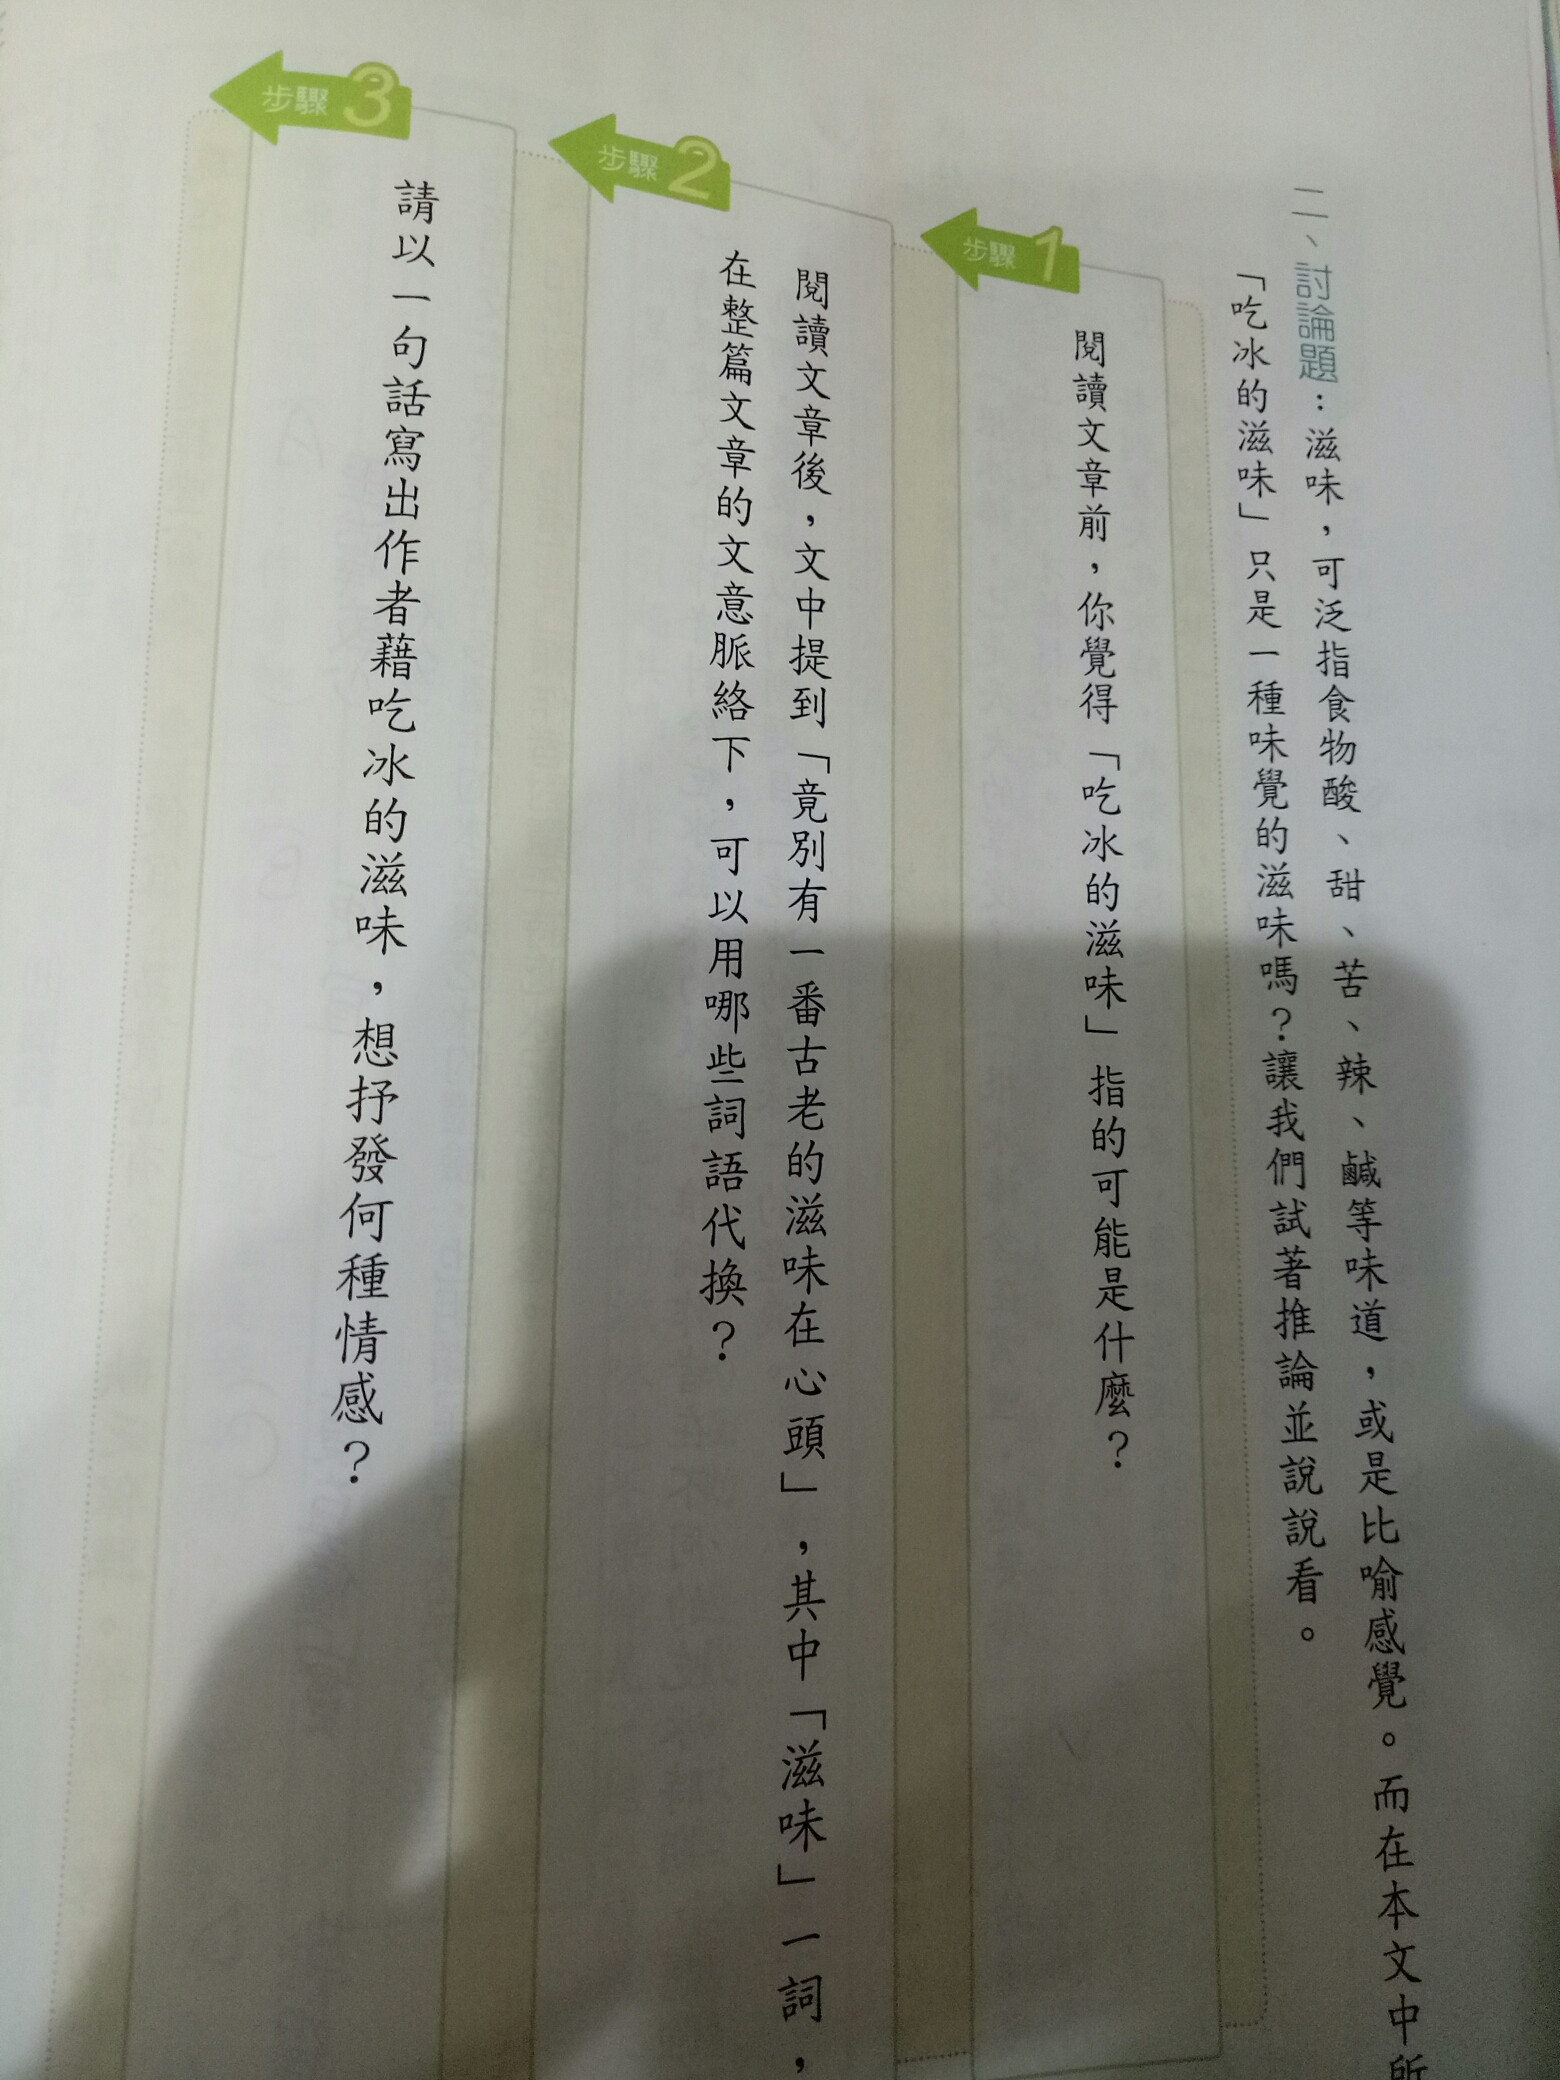 二、討論題：滋味，可泛指食物酸、甜、苦、辣、鹹等味道，或是比喻感覺。而在本文中所
「吃冰的滋味」只是一種味覺的滋味嗎？讓我們試著推論並說說看。
步驟1
閱讀文章前，你覺得「吃冰的滋味」指的可能是什麼？
步驟2
閱讀文章後，文中提到「竟別有一番古老的滋味在心頭」，其中「滋味」一詞，
在整篇文章的文意脈絡下，可以用哪些詞語代換？
步驟3
請以一句話寫出作者藉吃冰的滋味，想抒發何種情感？